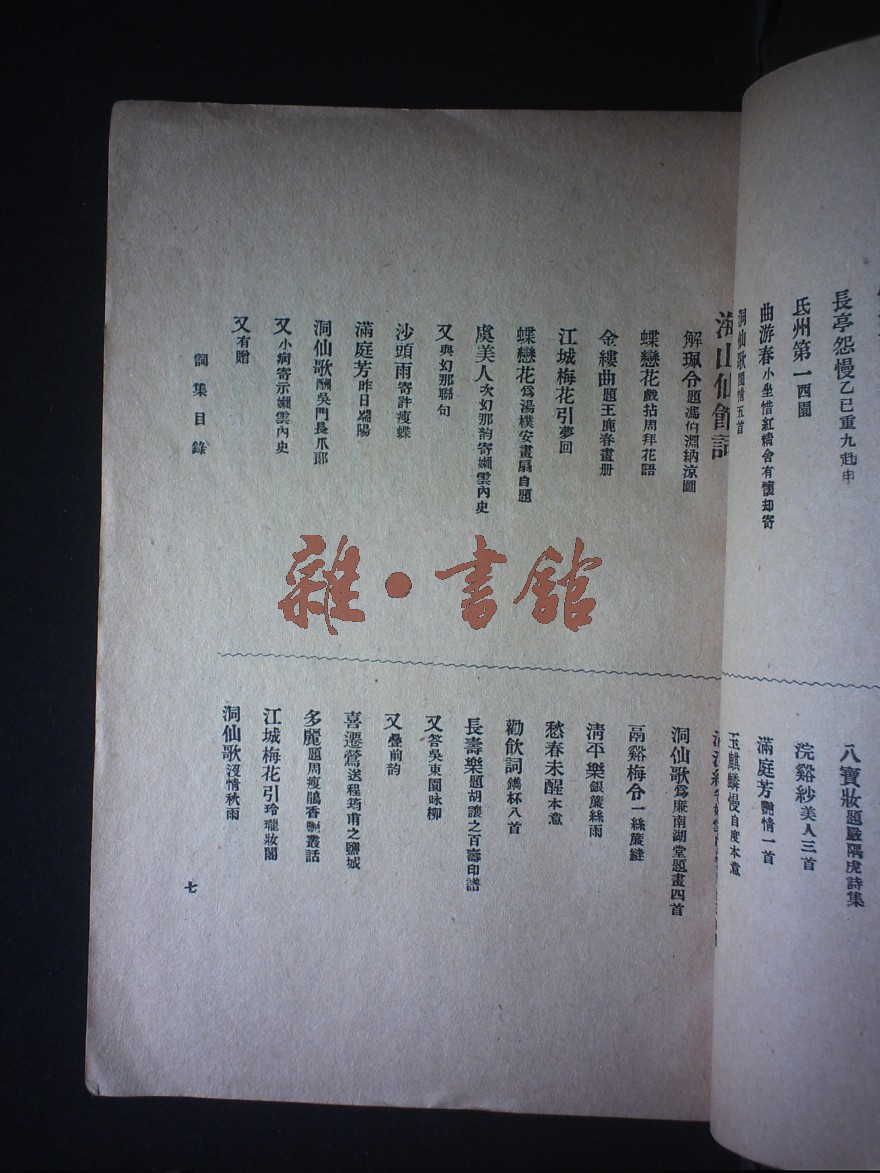 長亭怨慢乙巳重九
氐州第一西園
曲游春小坐惜紅精舍有懷却寄
洞仙歌閒情五首
八寶妝題嚴隅虎詩集
浣谿紗美人三首
滿庭芳艷情一首
玉麒麟慢自度本意
海山仙館詞
解珮令題馮伯淵納涼圖
蝶戀花戲拈周拜花語
金縷曲題王鹿春畫册
江城梅花引夢回
蝶戀花爲湯樸安畫扇自題
虞美人次幻那韵寄嫻雲內史
又與幻那聯句
沙頭雨寄許瘦蝶
滿庭芳昨日端陽
洞仙歌酬吳門長爪郎
又小病寄示嫻雲內史
又有贈
洞仙歌爲廉南湖堂題畫四首
鬲谿梅令一絲簾縫
淸平樂銀簾絲雨
愁春未醒本意
勸飮詞鐫杯八首
長壽樂題胡讓之百壽印譜
又答吳東園咏柳
又疊前韵
喜遷鶯送程筠甫之鹽城
多麗題周瘦鵑香艷叢話
江城梅花引玲瓏妝閣
洞仙歌沒情秋雨
詞集目錄
七
雜·書館